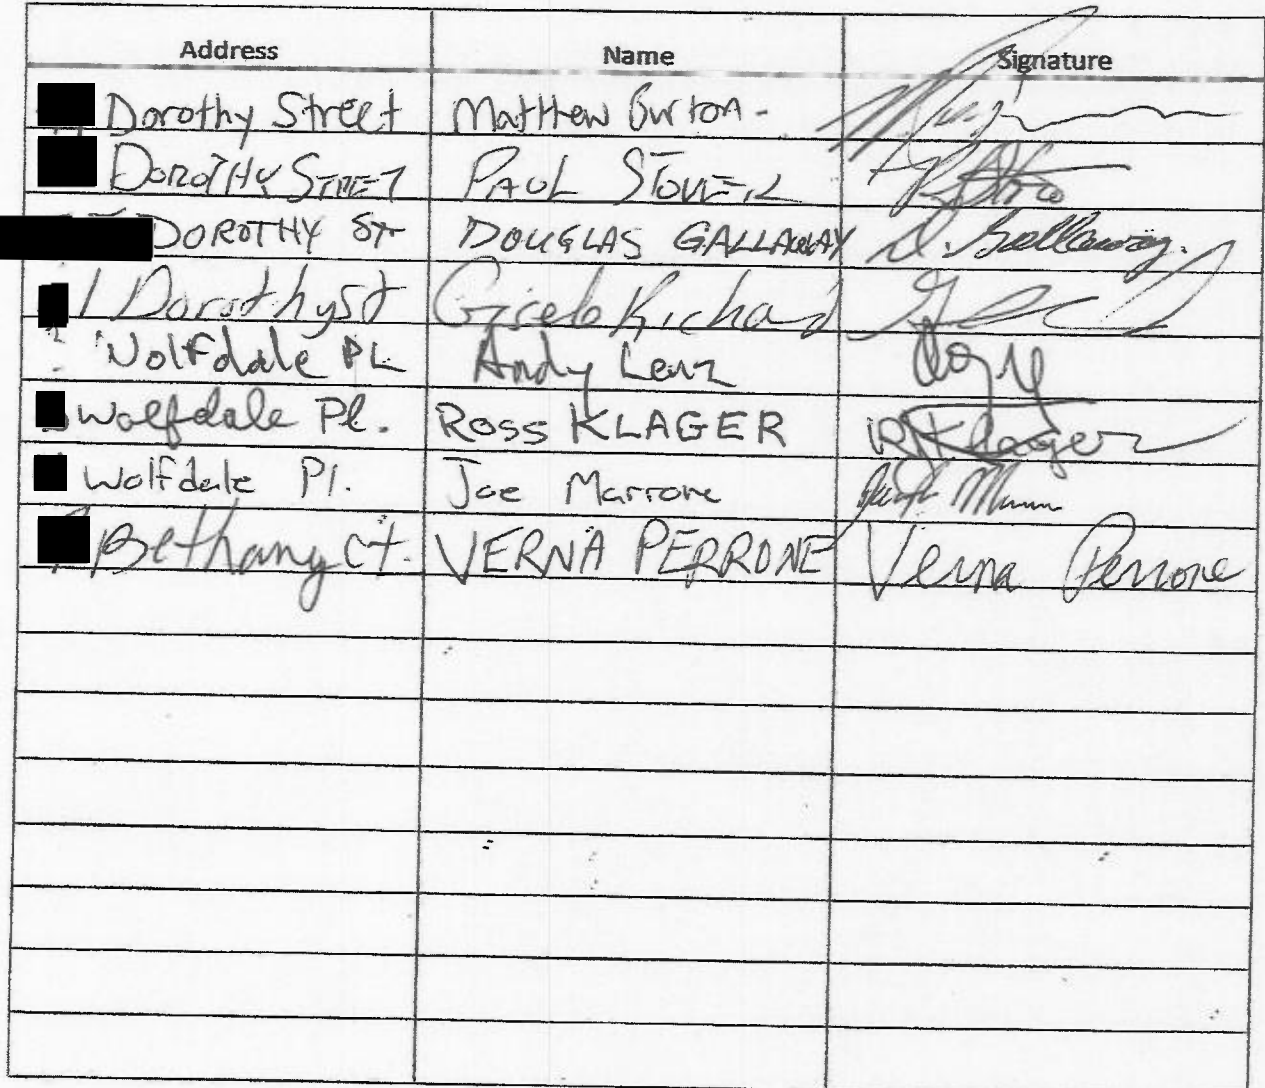 Address Name Signature
Dorothy Street Matthew Burton -
DOROTHY STREET PAUL
DOROTHY ST DOUGLAS GALLAWAY D. Gallaway.
Dorothy st Richard
Wolfdale PL Andy Lenz
Wolfdale Pl. ROSS KLAGER R Klager
Wolfdale Pl. Joe Marrone
Bethany ct. VERNA PERRONE Verna Perrone